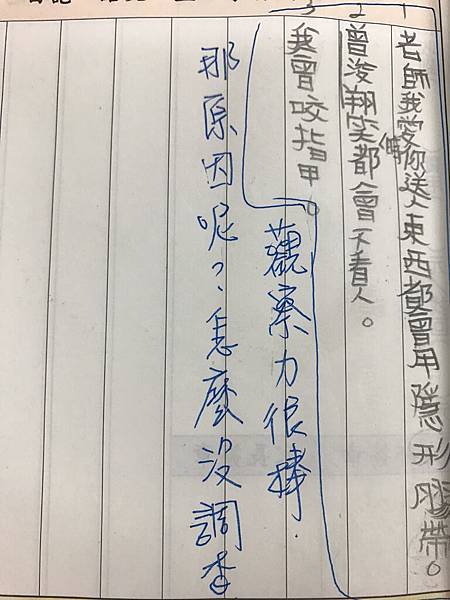 1老師我愛你送人東西都會用隱形膠帶。
2曾浚翔笑都會不看人。
3我會咬指甲。
觀察力很棒.
那原因呢?怎麼沒調查